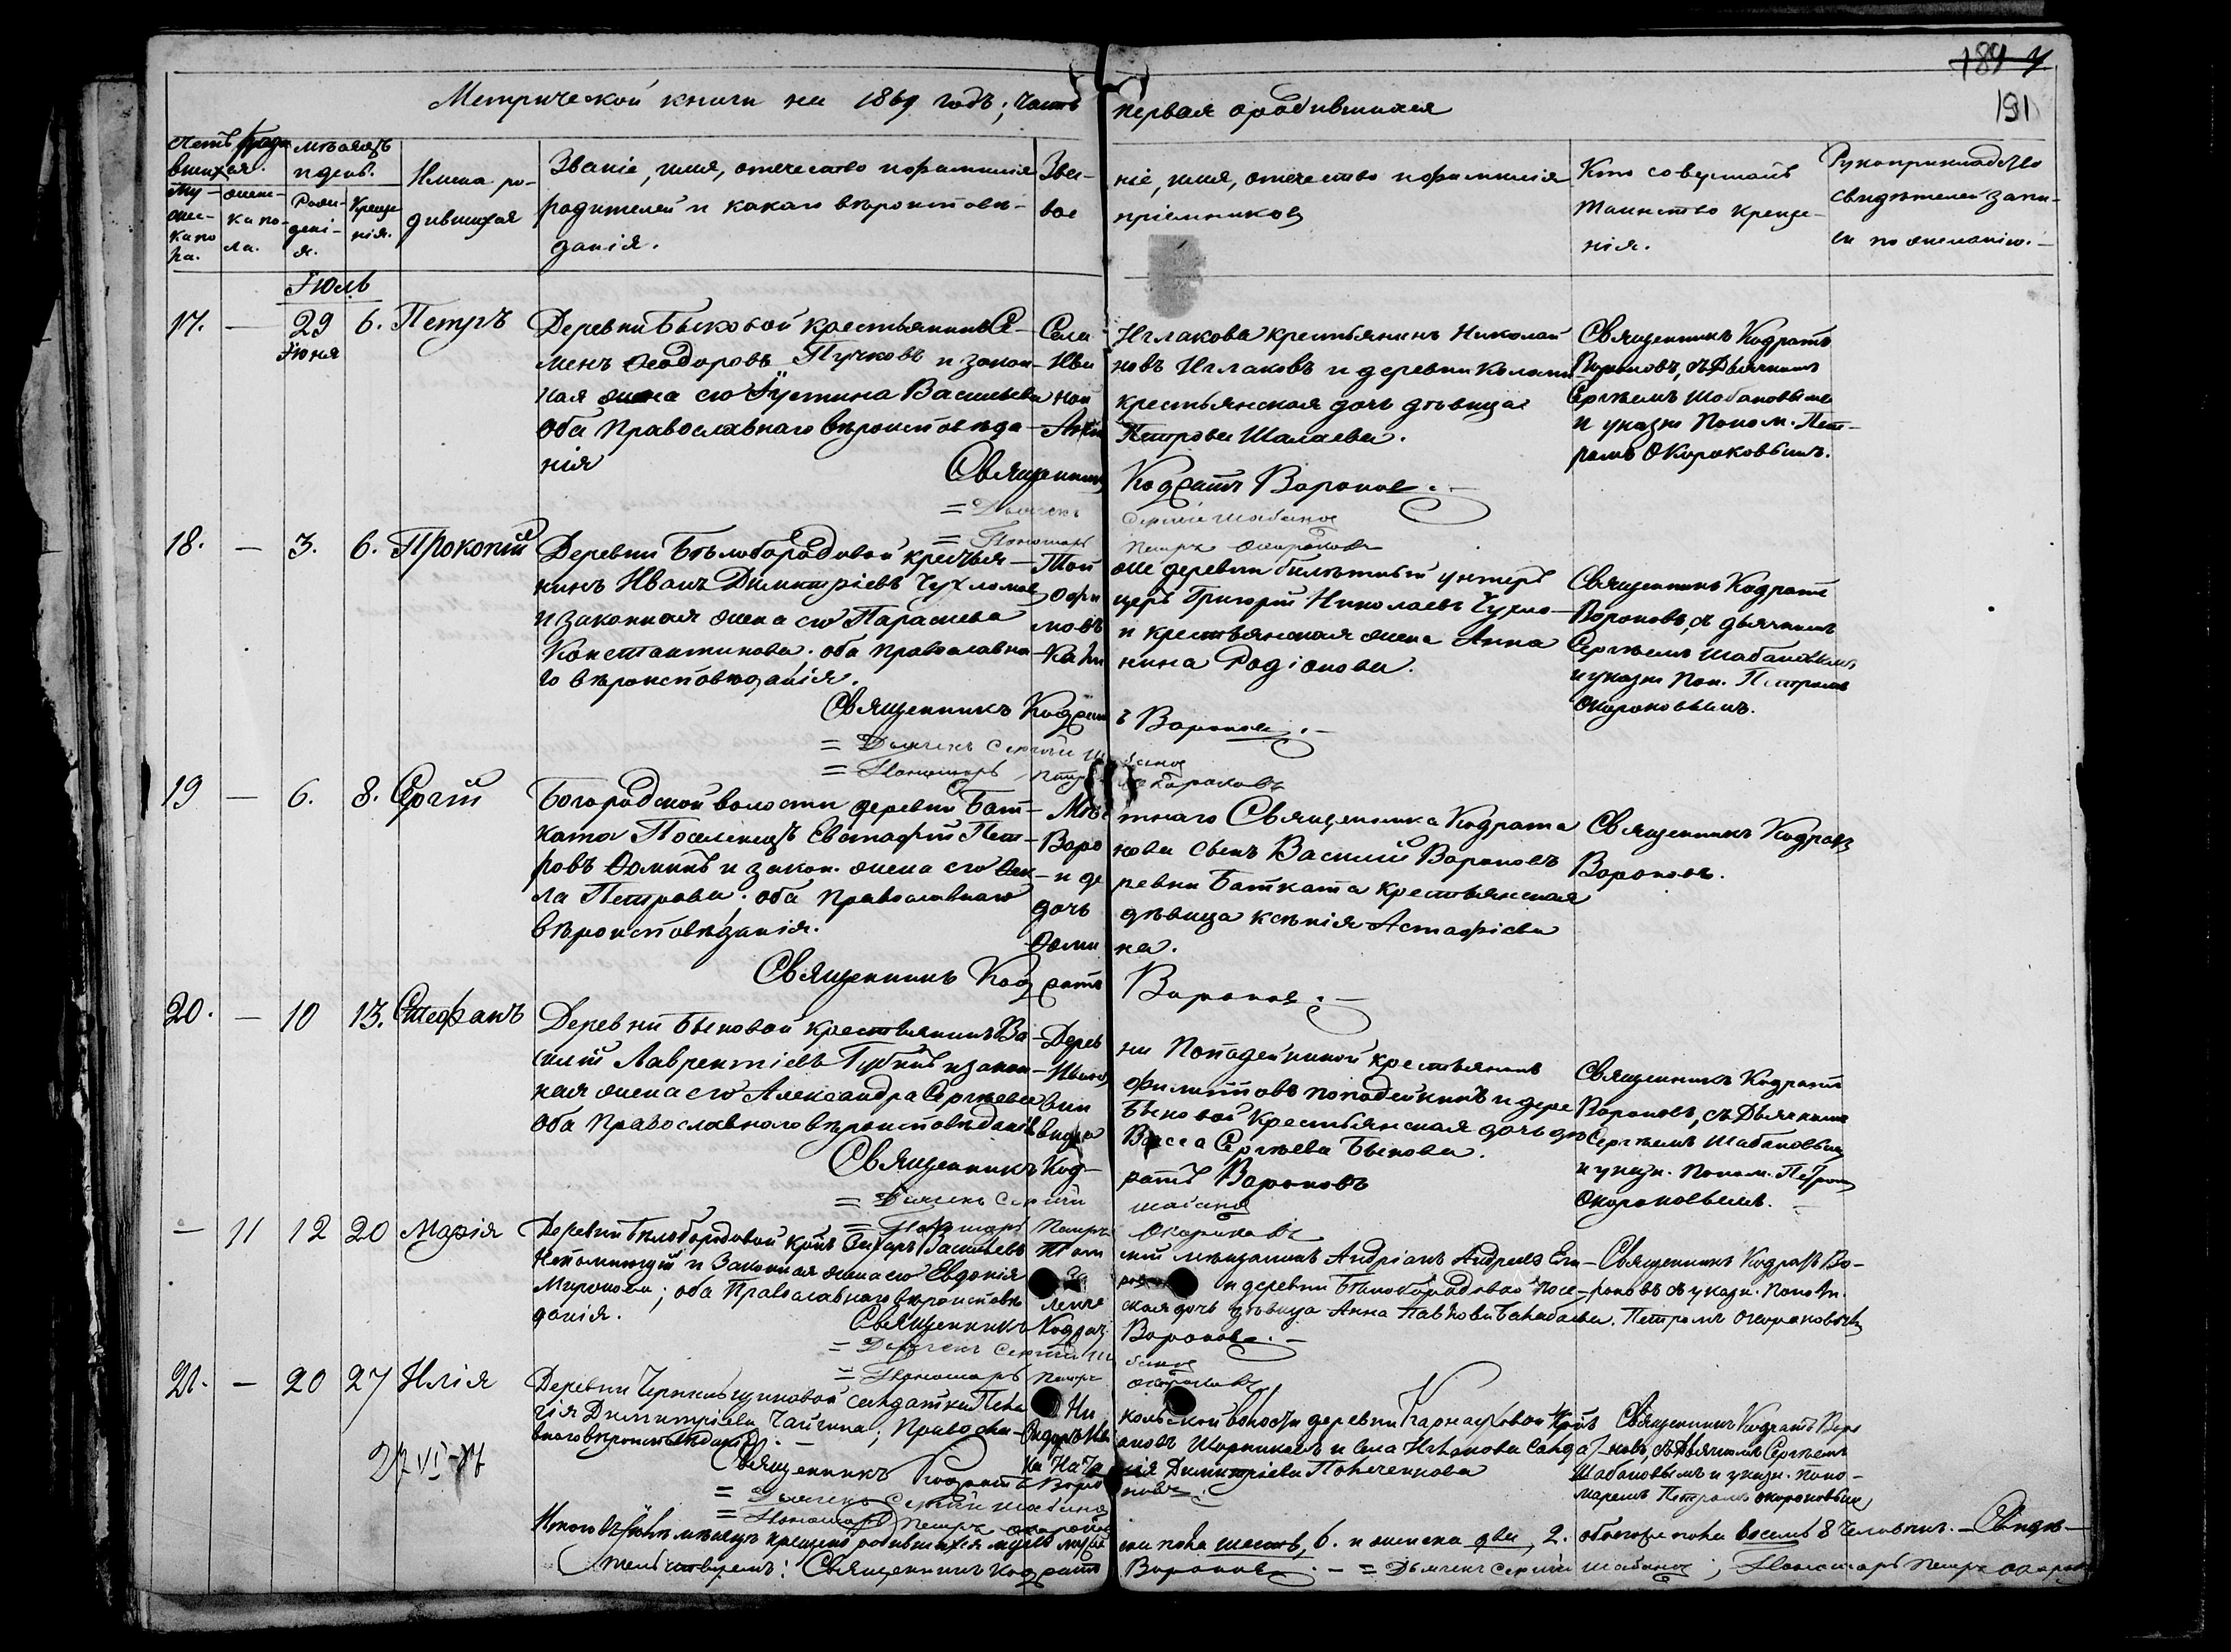 189
191
Метрической книги на 1869 годъ; часть первая о родившихся
Имена ро-
дившихся
Званіе, имя, отечество и фамилія
родителей и какого вѣроисповѣ-
данія.
Зва-
ніе, имя, отечество и фамилія
пріемниковъ
Кто совершалъ
таинство креще-
нія.
Рукоприкладство
свидѣтелей запи-
си по желанію.
мѣсяцъ
и день.
Рож-
дені-
я.
Креще
нія.
Іюль
17. — 29 6. Петръ
Іюня
Деревни Быковой крестьянинъ Се-
менъ Ѳеодоровъ Пучковъ и закон-
ная жена его Іустина Васильева
оба Православнаго вѣроисповѣда-
нія
Села Иглакова крестьянинъ Николай
Ива новъ Иглаковъ и деревни
крестьянская дочь дѣвица
Петрова Шалаева.
Священникъ Кодратъ
Вороновъ, съ Дьячкомъ
Сергѣемъ Шабановымъ
и указн. Поном. Пет-
ромъ Окороковымъ.
Священникъ Кодратъ Вороновъ.
= Дьячекъ Сергій Шабановъ
= Пономарь Петръ Окороковъ
18. — 3. 6. Прокопій
Деревни Бѣлобородовой крестья-
нинъ Иванъ Димитріевъ Чухломовъ
и законная жена его Параскева
Константинова. оба православна-
го вѣроисповѣданія.
Той же деревни билетный унтеръ
офи церъ Григорій Николаевъ Чухло-
мовъ и крестьянская жена Анна
нина Родіонова.
Священникъ Кодратъ
Вороновъ, съ дьячкомъ
Сергѣемъ Шабановымъ
и указн. Пон. Петромъ
Окороковымъ.
Священникъ Кодратъ Вороновъ.
= Дьячекъ Сергій Шабановъ
= Пономарь Петръ Окороковъ
19 — 6. 8. Сергій
Богородской волости деревни Бат-
ката Поселенецъ Евстафій Пет-
ровъ Ѳоминъ и закон. жена его Ѳек-
ла Петрова; оба Православнаго
вѣроисповѣданія.
Мѣс тнаго Священника Кодрата
Воро нова сынъ Василій Вороновъ
и де ревни Батката крестьянская
дочь дѣвица Ксенія Астафіева
Ѳоми на.
Священникъ Кодратъ
Вороновъ.
Священникъ Кодратъ Вороновъ.
20. — 10 13. Стефанъ
Деревни Быковой крестьянинъ Ва-
силій Лаврентіевъ Губинъ и закон-
ная жена его Александра Сергѣева
оба Православнаго вѣроисповѣданія
Дерев ни Попадейкиной крестьянинъ
Филиповъ Попадейкинъ и дере
вни Быковой крестьянская дочь дѣ
вица Васса Сергѣева Быкова.
Священникъ Кодратъ
Вороновъ, съ Дьячкомъ
Сергѣемъ Шабановымъ
и указн. Поном. Петромъ
Окороковымъ.
Священникъ Кодратъ Вороновъ
= Дьячекъ Сергій Шабановъ
= Пономарь Петръ Окороковъ
— 11 12 20 Марія
Деревни Бѣлобородовой Захаръ Васильевъ
Непомнющій и Законная жена его Евдокія
Миронова; оба Православнаго вѣроисповѣ
данія.
Том скій мѣщанинъ Андріанъ Андреевъ
и деревни Бѣлобородовой посе-
ленче ская дочь дѣвица Анна Павлова
Священникъ Кодратъ Во-
роновъ съ указн. Поном.
Петромъ Окороковымъ
Священникъ Кодратъ Вороновъ.
= Дьячекъ Сергій Шабановъ
= Пономарь Петръ Окороковъ
21. — 20 27 Илія
Деревни солдатка Пела
гія Димитріева Чайгина; Правосла-
внаго вѣроисповѣданія.
Ни кольской волости деревни Карнауховой
и села Иглакова солдат
ка Ната лія Димитріева
Священникъ Кодратъ Воро
новъ, съ Дьячкомъ Сергѣемъ
Шабановымъ и указн. Поно-
маремъ Петромъ Окороковымъ
Священникъ Кодратъ Вороновъ.
= Дьячекъ Сергій Шабановъ
= Пономарь Петръ Окороковъ
Итого въ Іюлѣ мѣсяцѣ крещено родившихся мужеска пола шесть, 6. и женска два, 2. обоего пола восемь 8 человѣкъ. — Свидѣ-
тельствуемъ: Священникъ Кодратъ Вороновъ. — = Дьячекъ Сергій Шабановъ; Пономарь Петръ Окороковъ